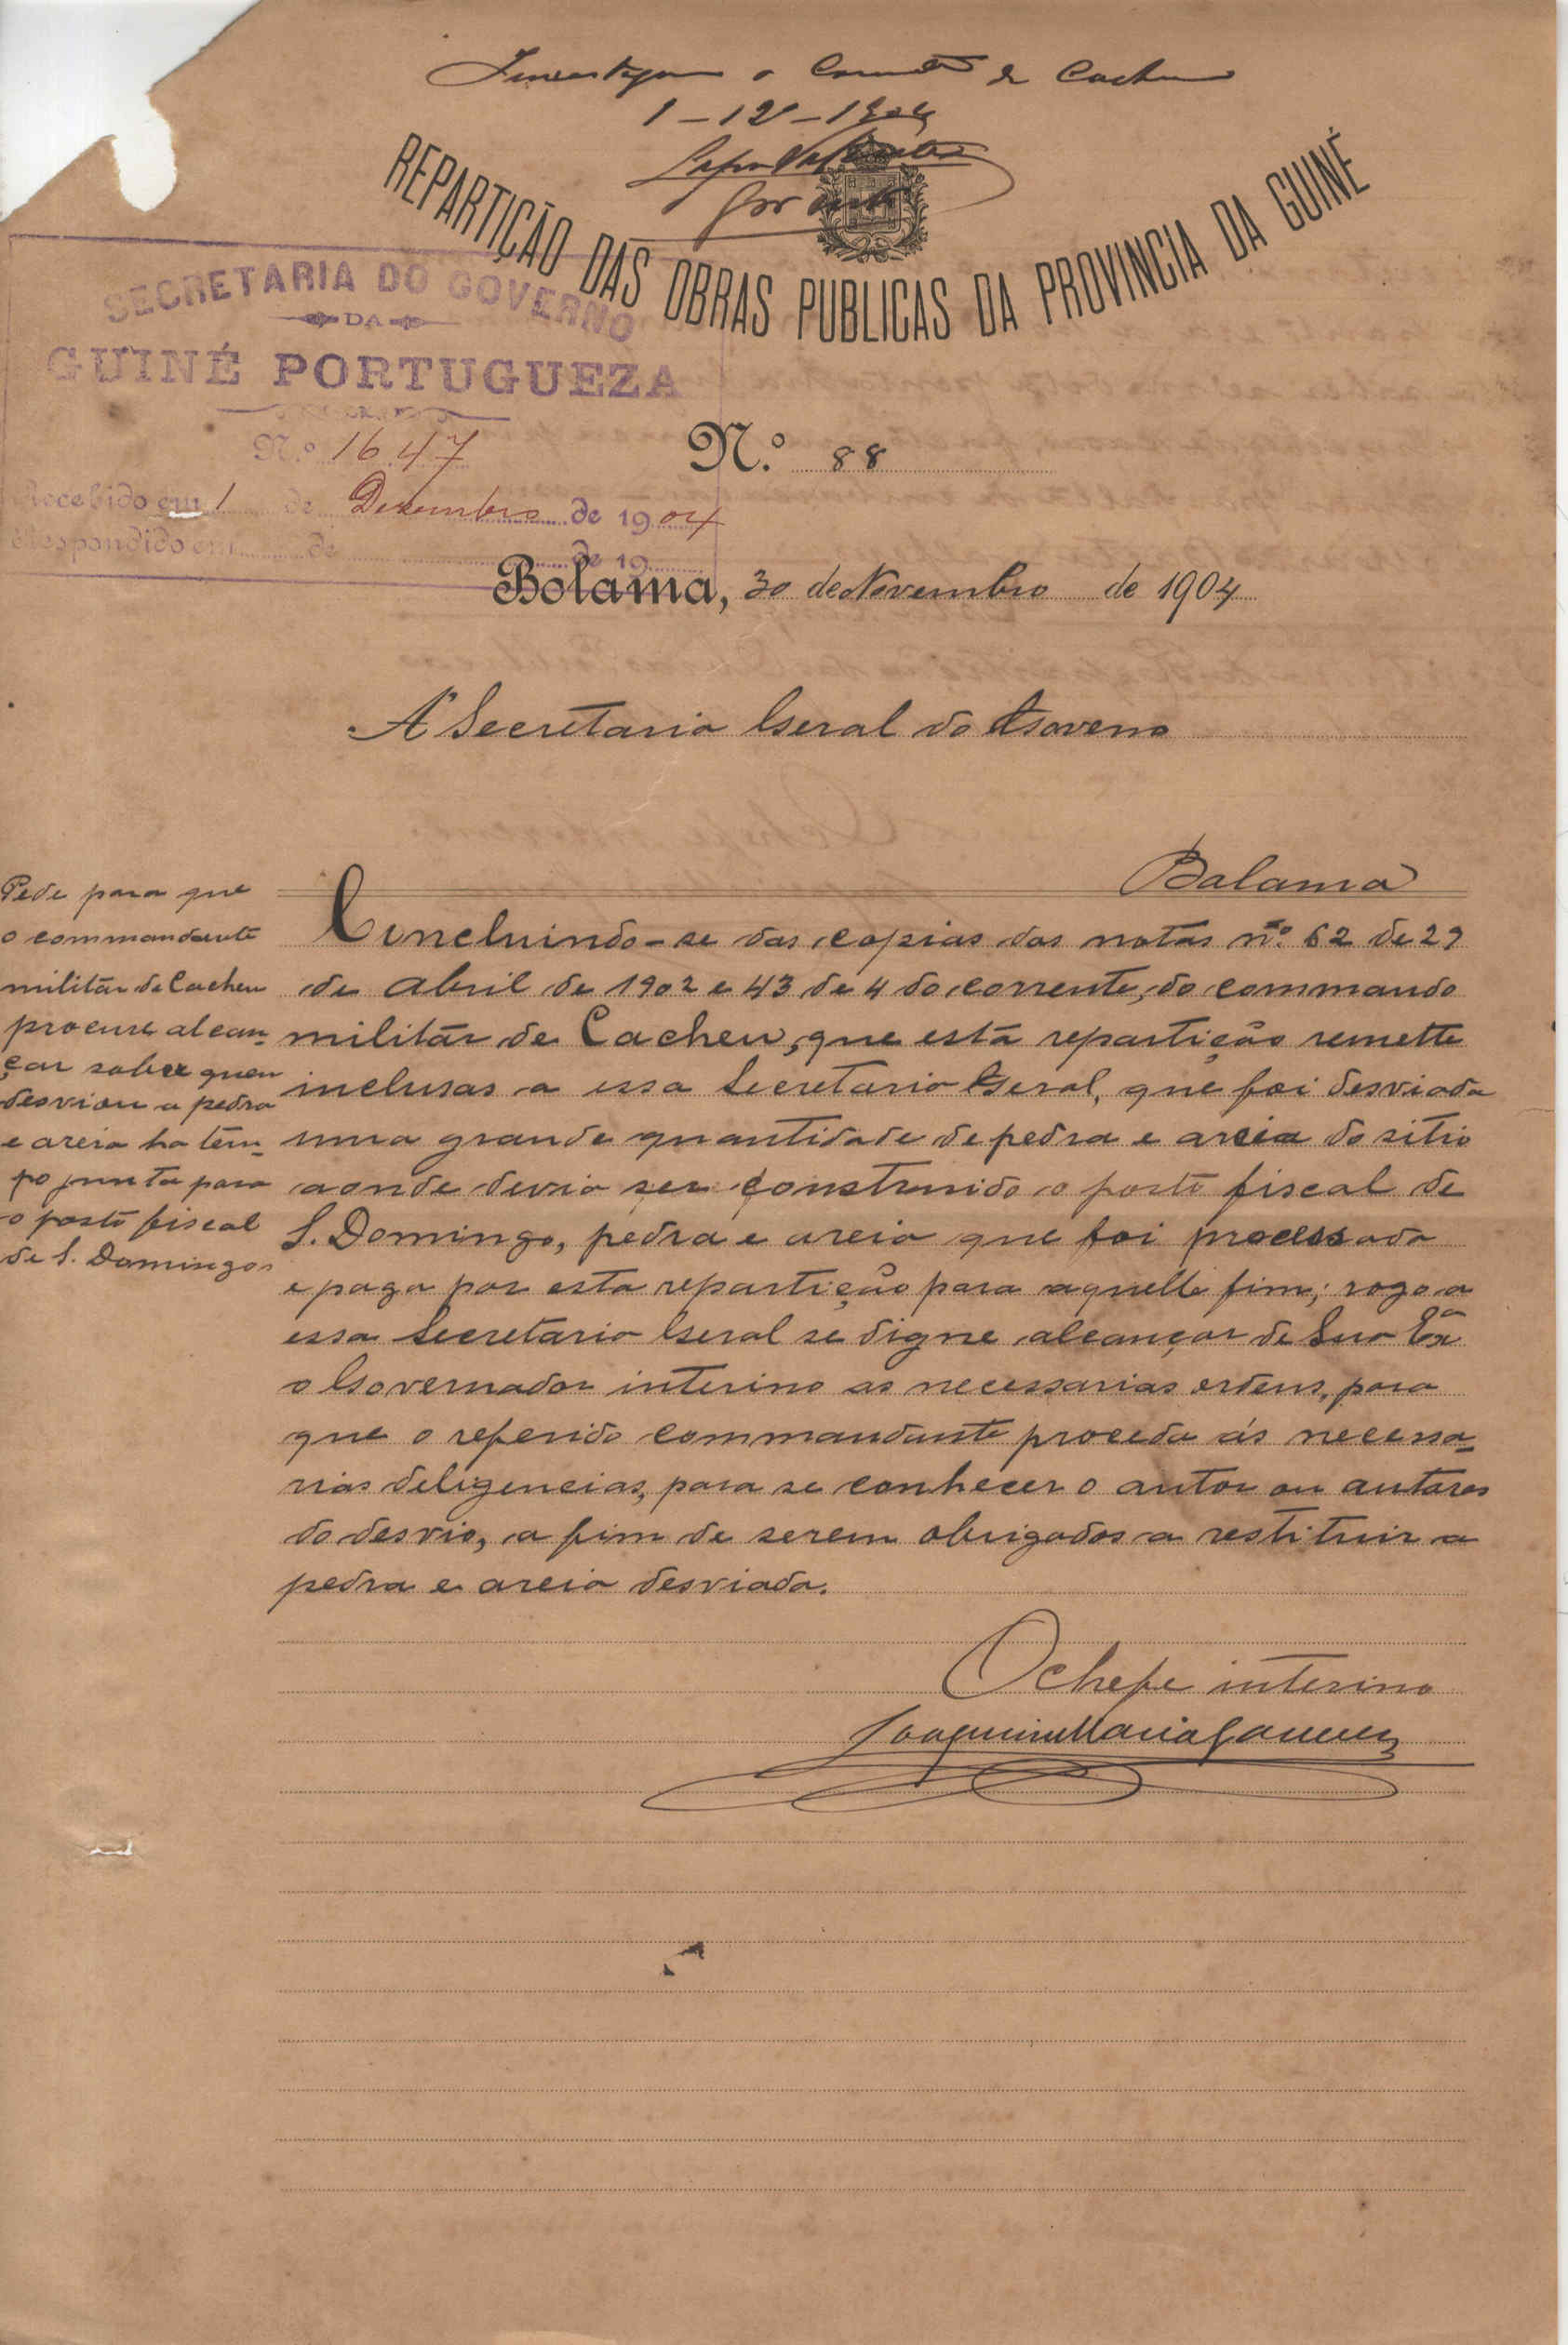 1-12-1904
REPARTIÇÃO DAS OBRAS PUBLICAS DA PROVINCIA DA GUINÉ
SECRETARIA DO GOVERNO
DA
GUINÉ PORTUGUEZA
N.º 1647
Recebido em 1 de Dezembro de 1904
Respondido em de de 19
N.º 88
Bolama, 30 de Novembro de 1904
A' Secretaria Geral do Governo
Bolama
Pede para que
o commandante
militar de Cacheu
procure alcan-
çar saber quem
desviou a pedra
e areia ha tem-
po junta para
o posto fiscal
de S. Domingos
Concluindo-se das copias das notas nº 62 de 29
de Abril de 1902 e 43 de 4 do corrente, do commando
militár de Cacheu, que está repartição remette
inclusas a essa Secretaria Geral, que foi desviada
uma grande quantidade de pedra e areia do sitio
aonde devia ser construido o posto fiscal de
S. Domingo, pedra e areia que foi processada
e paga por esta repartição para aquelle fim; rogo a
essa Secretaria Geral se digne alcançar de Sua Exª
o Governador interino as necessarias ordens, para
que o referido commandante proceda ás necessa-
rias deligencias, para se conhecer o autor ou autores
do desvio, a fim de serem obrigados a restituir a
pedra e areia desviada.
O chefe interino
Joaquim Maria